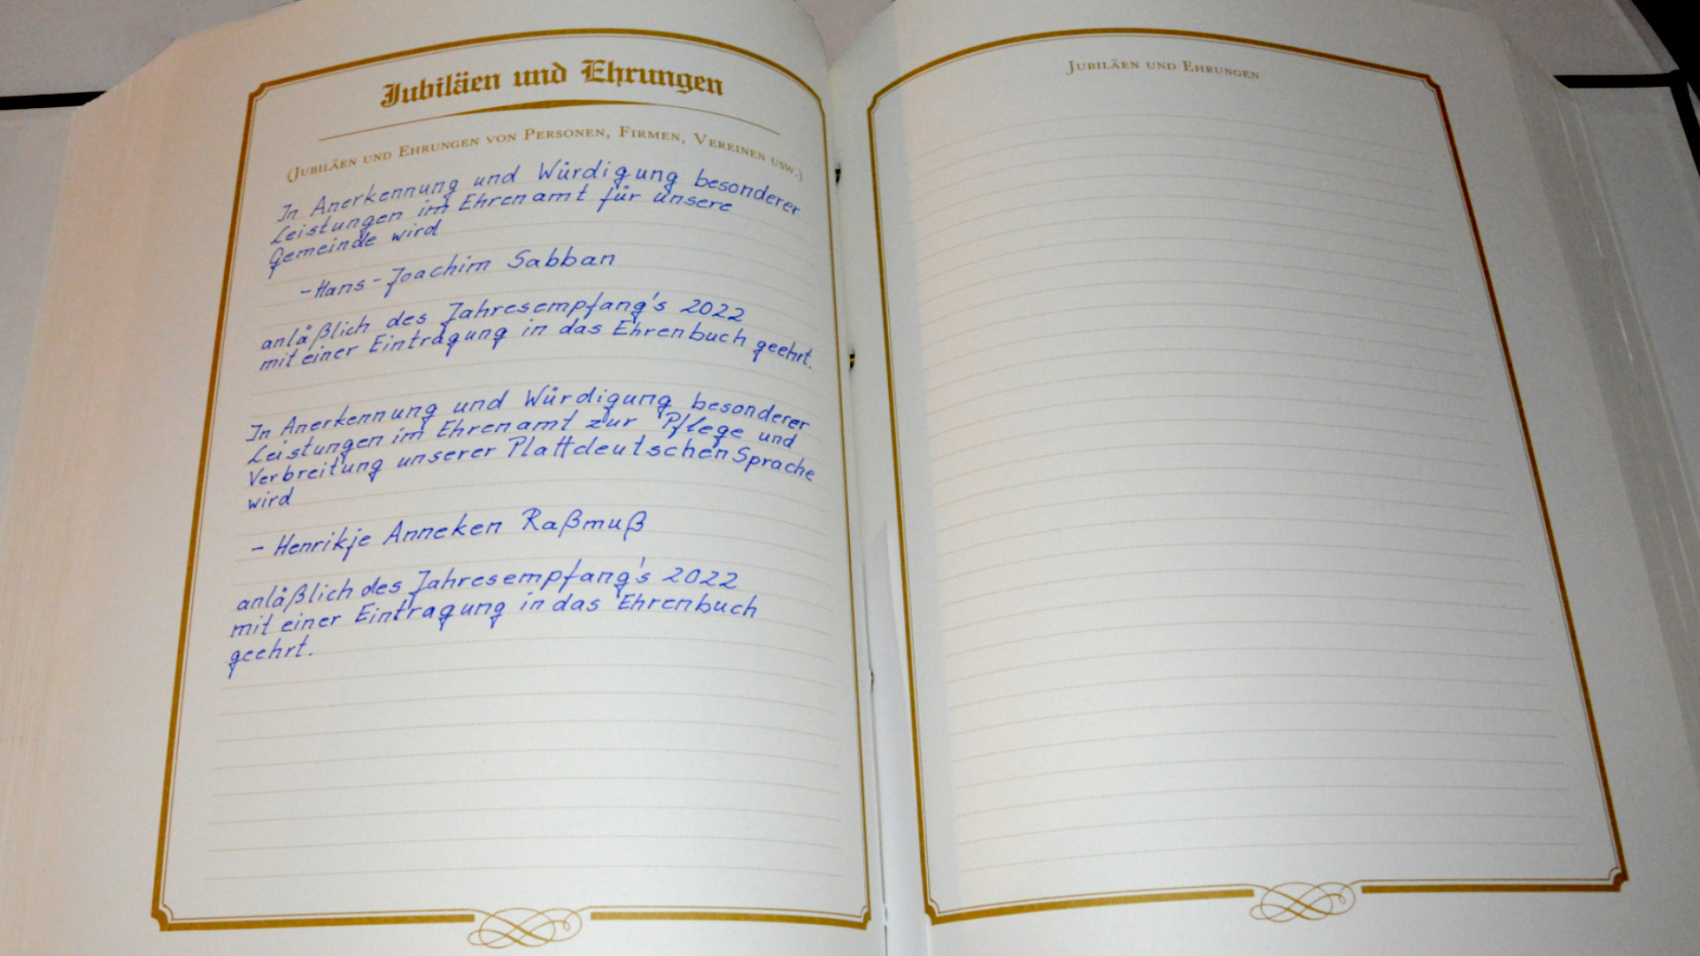 Jubiläen und Ehrungen
(Jubiläen und Ehrungen von Personen, Firmen, Vereinen usw.)
In Anerkennung und Würdigung besonderer
Leistungen im Ehrenamt für unsere
Gemeinde wird
- Hans-Joachim Sabban
anläßlich des Jahresempfang's 2022
mit einer Eintragung in das Ehrenbuch geehrt.
In Anerkennung und Würdigung besonderer
Leistungen im Ehrenamt zur Pflege und
Verbreitung unserer Plattdeutschen Sprache
wird
- Henrikje Anneken Raßmuß
anläßlich des Jahresempfang's 2022
mit einer Eintragung in das Ehrenbuch
geehrt.
Jubiläen und Ehrungen